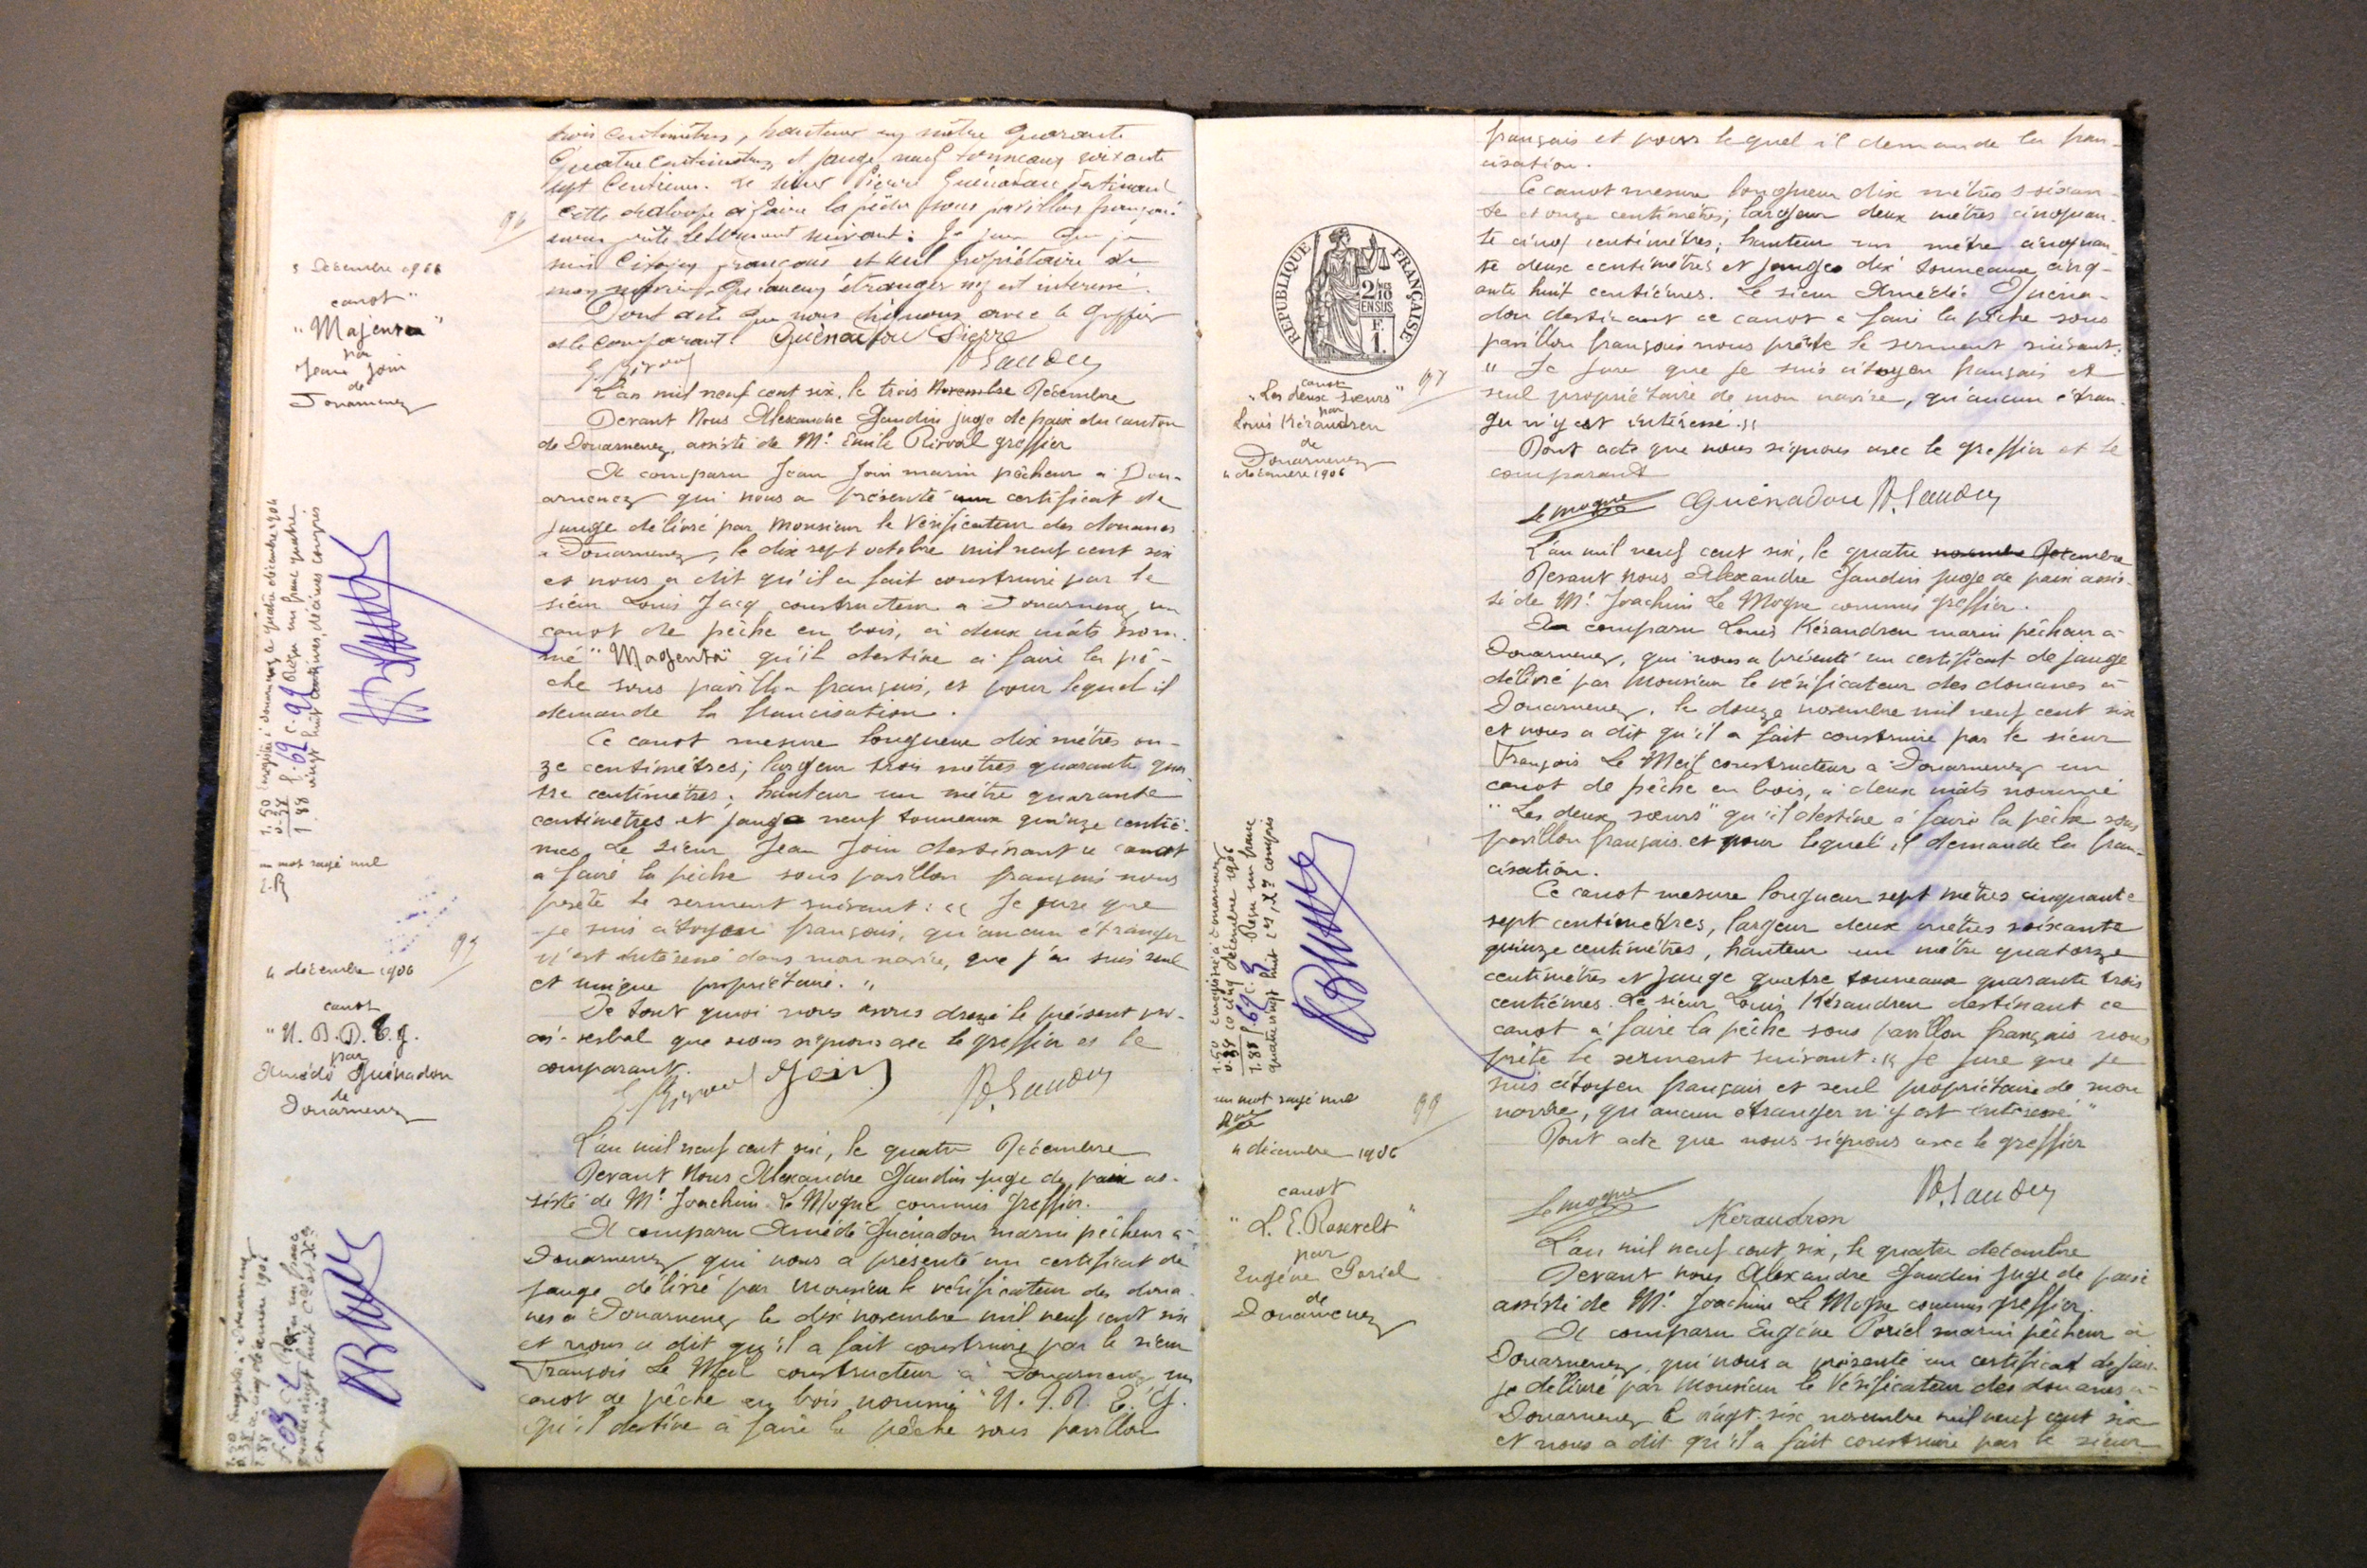 trois centimètres, hauteur un mètre quarante
quatre centimètres et jauge neuf tonneaux soixante
sept centièmes. Le sieur Pierre Guénadou destinant
cette chaloupe à faire la pêche sous pavillon français
nous prête le serment suivant: Je jure que je
suis citoyen français et seul propriétaire de
mon navire, qu'aucun étranger n'y est intéressé.
Dont acte que nous signons avec le greffier
et le comparant. Guénadou Pierre
96
3 Décembre 1906
canot
"Majenta"
par
Jean Join
de
Douarnenez
L'an mil neuf cent six, le trois Novembre Décembre
Devant Nous Alexandre Gaudin juge de paix du canton
de Douarnenez, assisté de Mr. Emile Pirval greffier
A comparu Jean Join marin pêcheur à Dou-
arnenez qui nous a présenté un certificat de
jauge délivré par Monsieur le Vérificateur des douanes
à Douarnenez, le dix sept octobre mil neuf cent six
et nous a dit qu'il a fait construire par le
sieur Louis Jacq constructeur à Douarnenez, un
canot de pêche en bois, à deux mâts nom-
mé "Magenta" qu'il destine à faire la pê-
che sous pavillon français, et pour lequel il
demande la francisation.
Ce canot mesure longueur dix mètres on-
ze centimètres; largeur trois mètres quarante qua-
tre centimètres; hauteur un mètre quarante
centimètres et jauge neuf tonneaux quinze centiè-
mes. Le sieur Jean Join destinant ce canot
à faire la pêche sous pavillon français nous
prête le serment suivant: "Je jure que
je suis citoyen français, qu'aucun étranger
n'est intéressé dans mon navire, que j'en suis seul
et unique propriétaire."
De tout quoi nous avons dressé le présent pro-
cès-verbal que nous signons avec le greffier et le
comparant.
Join
un mot rayé nul
4 décembre 1906
canot
"N. D. D. E. G."
par
Amédé Guénadou
de
Douarnenez
L'an mil neuf cent six, le quatre Décembre
Devant Nous Alexandre Gaudin juge de paix as-
sisté de Mr. Joachim Le Mogne commis greffier.
A comparu Amédé Guénadou marin pêcheur à
Douarnenez qui nous a présenté un certificat de
jauge délivré par Monsieur le vérificateur des doua-
nes à Douarnenez le dix novembre mil neuf cent six
et nous a dit qu'il a fait construire par le sieur
François Le Meil constructeur à Douarnenez un
canot de pêche en bois nommé "N. D. D. E. G.
qu'il destine à faire la pêche sous pavillon
français et pour lequel il demande la fran-
cisation.
Ce canot mesure longueur dix mètres soixan-
te et onze centimètres; largeur deux mètres cinquan-
te cinq centimètres; hauteur un mètre cinquan-
te deux centimètres et jauge dix tonneaux cinq-
ante huit centièmes. Le sieur Amédée Guéna-
dou destinant ce canot à faire la pêche sous
pavillon français nous prête le serment suivant:
"Je jure que je suis citoyen français et
seul propriétaire de mon navire, qu'aucun étran-
ger n'y est intéressé."
Dont acte que nous signons avec le greffier et le
comparant
Le Mogne Guénadou A. Gaudin
RÉPUBLIQUE FRANÇAISE
2/10 EN SUS
F.
1.
canot
"Les deux soeurs"
par
Louis Kéraudren
de
Douarnenez
4 décembre 1906
L'an mil neuf cent six, le quatre novembre Décembre
Devant Nous Alexandre Gaudin juge de paix assis-
té de Mr. Joachim Le Mogne commis greffier.
A comparu Louis Kéraudren marin pêcheur à
Douarnenez, qui nous a présenté un certificat de jauge
délivré par Monsieur le vérificateur des douanes à
Douarnenez, le douze novembre mil neuf cent six
et nous a dit qu'il a fait construire par le sieur
François Le Meil constructeur à Douarnenez un
canot de pêche en bois, à deux mâts nommé
"Les deux soeurs" qu'il destine à faire la pêche sous
pavillon français et pour lequel il demande la fran-
cisation.
Ce canot mesure longueur sept mètres cinquante
sept centimètres, largeur deux mètres soixante
quinze centimètres, hauteur un mètre quatorze
centimètres et jauge quatre tonneaux quarante trois
centièmes. Le sieur Louis Kéraudren destinant ce
canot à faire la pêche sous pavillon français nous
prête le serment suivant. "Je jure que je
suis citoyen français et seul propriétaire de mon
navire, qu'aucun étranger n'y est intéressé"
Dont acte que nous signons avec le greffier
A. Gaudin
Le Mogne Keraudren
un mot rayé nul
99
4 décembre 1906
canot
"L. E. Rosevelt"
par
Eugène Poriel
de
Douarnenez
L'an mil neuf cent six, le quatre décembre
Devant nous Alexandre Gaudin juge de paix
assisté de Mr. Joachim Le Mogne commis greffier.
A comparu Eugène Poriel marin pêcheur à
Douarnenez, qui nous a présenté un certificat de jau-
ge délivré par Monsieur le Vérificateur des douanes à
Douarnenez le vingt-six novembre mil neuf cent six
et nous a dit qu'il a fait construire par le sieur